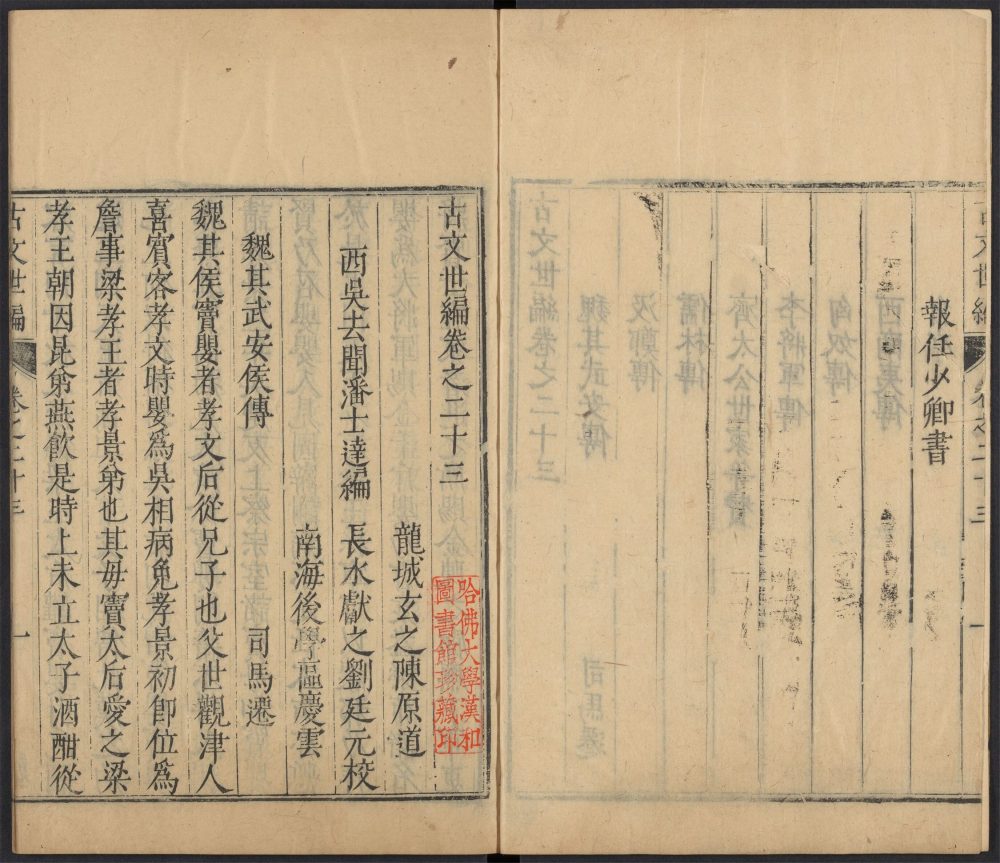 古文世編 卷之二十三 一
報任少卿書
古文世編卷之二十三
龍城玄之陳原道
西吳去聞潘士達編 長水獻之劉廷元校
南海後學區慶雲
魏其武安侯傳 司馬遷
魏其侯竇嬰者孝文后從兄子也父世觀津人
喜賓客孝文時嬰為吳相病免孝景初卽位為
詹事梁孝王者孝景弟也其母竇太后愛之梁
孝王朝因昆弟燕飲是時上未立太子酒酣從
古文世編 卷之二十三 一
哈佛大學漢和
圖書館珍藏印